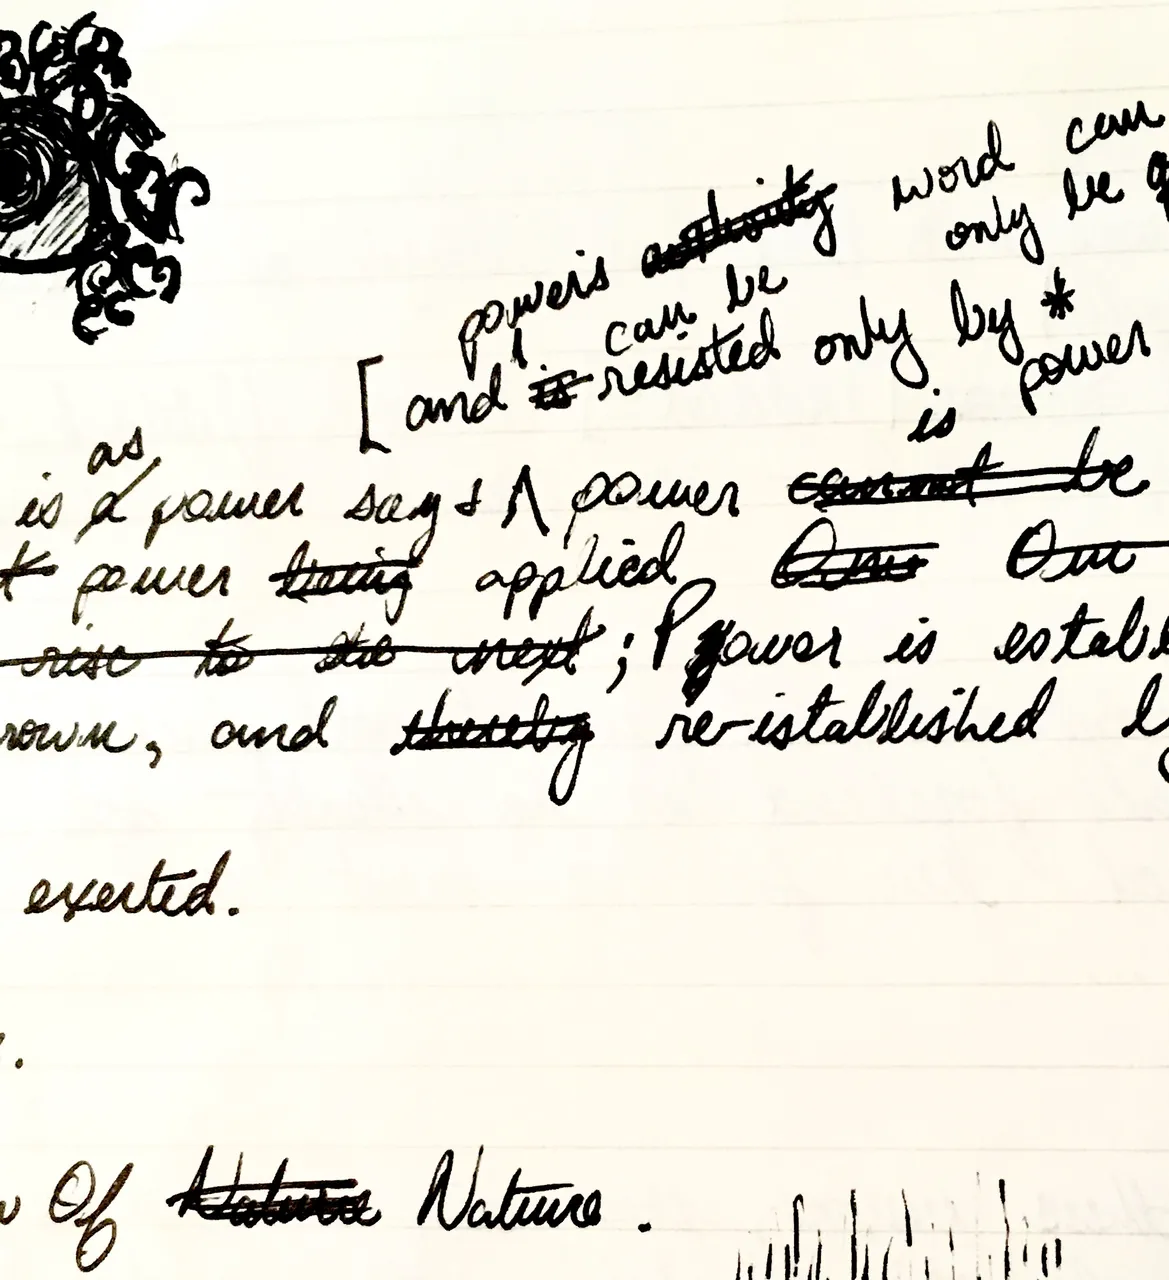 word can
power's authority only be
can be
[and is resisted only by *
is power
as
is a power says ⋀ power cannot be
power being applied Our
rise to the next; Power is establ
rown, and thereby re-istablished
exerted.
Of Nature Nature.